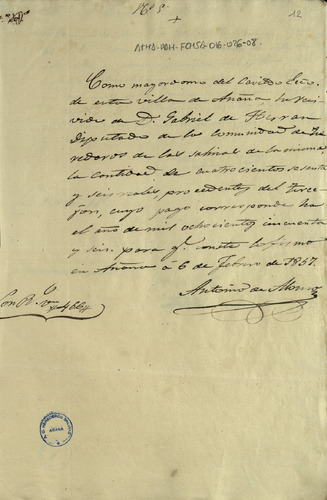 12
+
ATHA-DAH-FCMSA-016-026-08.
Como mayordomo del Cavildo Ecco.
de esta villa de Añana he reci-
vido de D. Gabriel de
Diputado de la comunidad de He-
rederos de las salinas de la misma
la cantidad de cuatrocientos sesenta
y seis reales, procedentes del
cuyo pago corresponde ha
el año de mil ochocientos cincuenta
y seis. para q. conste lo firmo
en Añana á 6 de Febrero de 1857.
Antonio de
Son R. v. 466
AÑANA